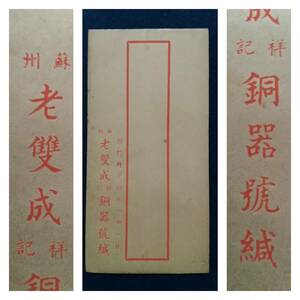 蘇州
老雙成
祥記
銅
老雙成
銅器號緘
成
祥記
銅器號緘